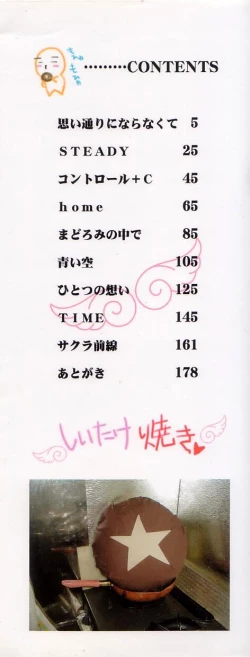 ………CONTENTS
思い通りにならなくて 5
STEADY 25
コントロール+C 45
home 65
まどろみの中で 85
青い空 105
ひとつの想い 125
TIME 145
サクラ前線 161
あとがき 178
しいたけ焼き